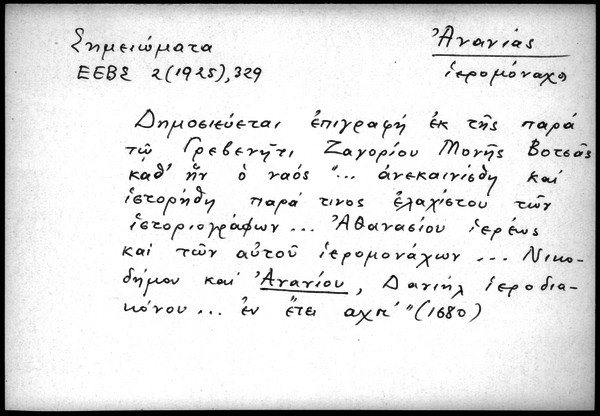 Σημειώματα
ΕΕΒΣ 2(1925),329
Ἀνανίας
ἱερομόναχο
Δημοσιεύεται ἐπιγραφή ἐκ τῆς παρά
τῷ Γρεβενῆτι Ζαγορίου Μονῆς Βοτσᾶς
καθ' ἥν ὁ ναός "... ἀνεκαινίσθη καί
ἱστορήθη παρά τινος ἐλαχίστου τῶν
ἱστοριογράφων... Ἀθανασίου ἱερέως
καί τῶν αὐτοῦ ἱερομονάχων ... Νικο-
δήμου καί Ἀνανίου, Δανιήλ ἱεροδια-
κόνου... ἐν ἔτει αχπ' "(1680)